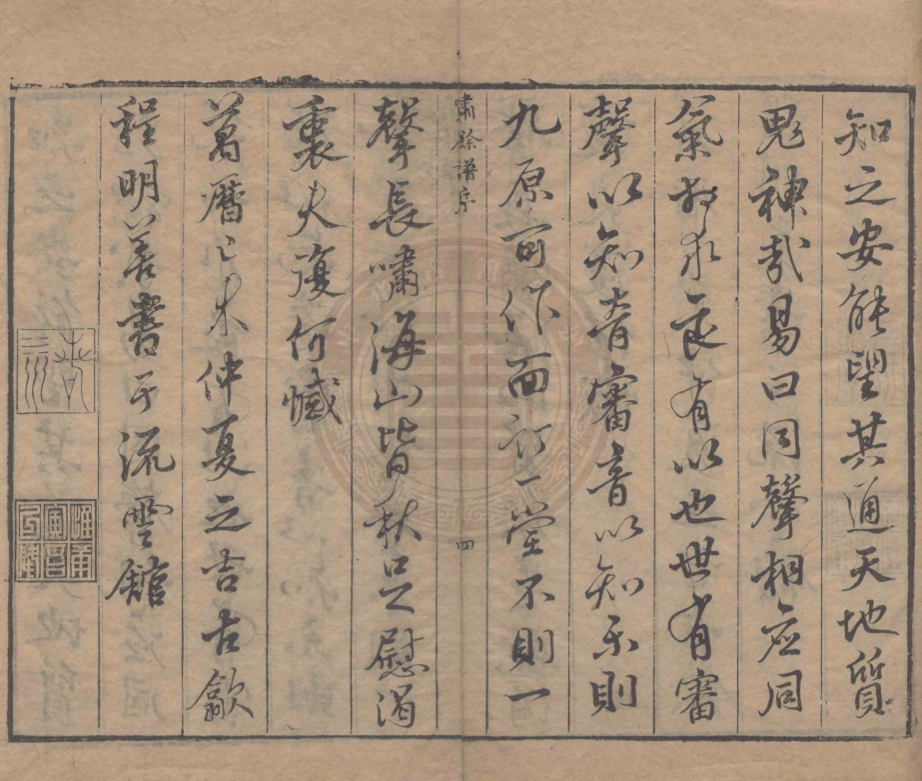 知之安能望其通天地質
鬼神哉易曰同聲相应同
氣相求良有以也世有審
聲以知音審音以知乐則
九原可作面訂一堂不則一
嘯餘譜序
四
聲長嘯海山皆秋足慰渴
衷夫復何憾
萬曆己未仲夏之吉古歙
程明善書于流雲館